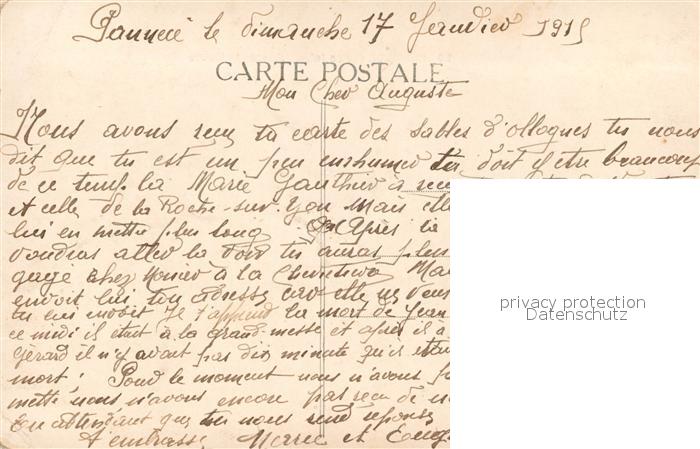 Pannecé le dimanche 17 Janvier 1915
CARTE POSTALE
Mon Cher Auguste
Nous avons reçu ta carte des Sables d'ollognes tu nous
dit que tu est un peu enrhumer tu doit y etre beaucoup
de ce temps la Marie Gauthier à reçu
et celle de la Roche-sur-Yon mais elle
lui en mettre plus long Après la
voudras aller la voir tu auras plus
chez à la Ma
envoit lui ton adresse car elle ne
tu lui envoit Je t'apprend la mort de Jean
ce midi il était à la grand-messe et après il a
Gérard il n'y avait pas dix minute qu'il etai
mort; Pour le moment nous n'avons p
mette nous n'avons encore pas reçu de
En attendant que tu nous rend réponse
t'embrasse et
privacy protection
Datenschutz